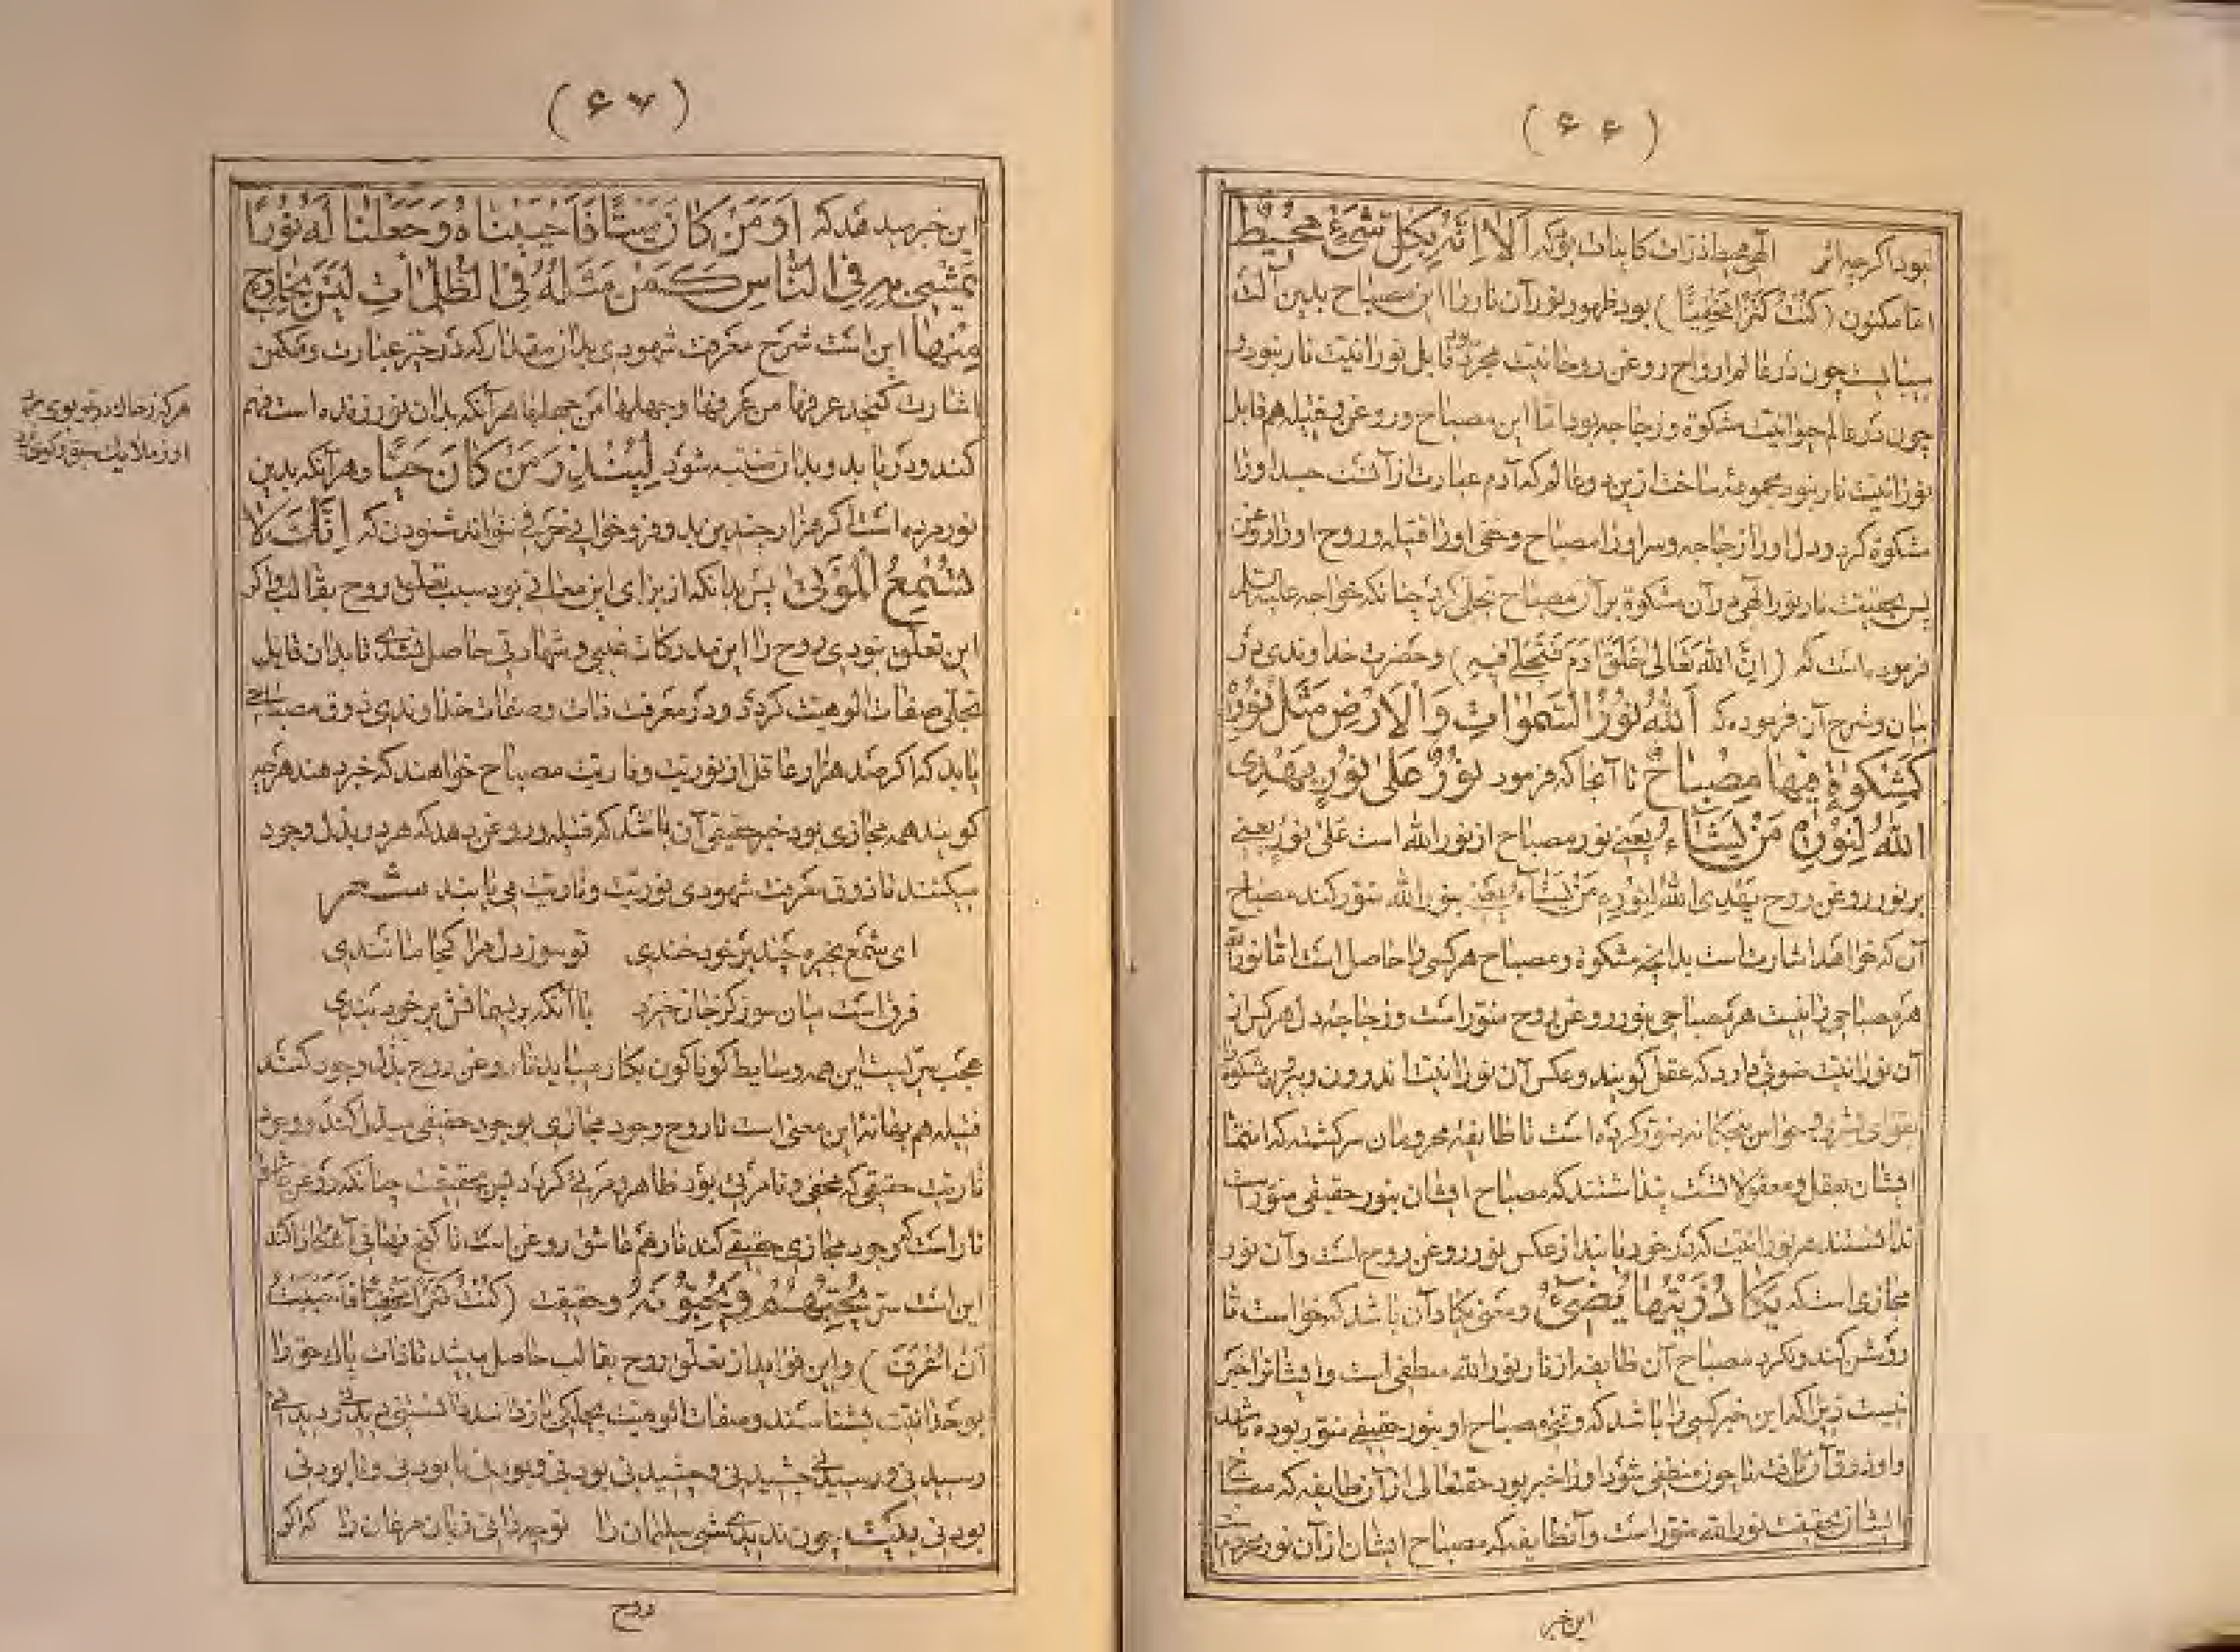 (۶۶)
نبود اگرچه اثر الهی محیط ذرات کاینات بود که اَلا اِنَّهُ بِکُلِّ شَیْءٍ مُحیطٌ
اما مکنون (کُنْتُ کَنْزًا مَخْفِیًّا) بود ظهور نور آن نار را این مصباح بدین آلت
چون در عالم ارواح روغن روحانیت مجرد بود قابل نورانیت نار نبود و
چون در عالم حیوانیت مشکوة و زجاجه بود اما این مصباح و روغن و فتیله هم قابل
نورانیت نار نبود مجموعهٔ ساخت ازین دو عالم که آدم عبارت از آنست جسد او را
مشکوة کرد و دل او را زجاجه و سر او را مصباح و خفی او را فتیله و روح او را روغن
پس بحقیقت نار نور الهی در آن مشکوة بر آن مصباح تجلی کرد چنانکه خواجه علیه السلام
فرموده است که (اِنَّ اللهَ تَعالی خَلَقَ ادَمَ فَتَجَلّی فیهِ) و حضرت خداوندی در
بیان و شرح آن فرموده که اَللهُ نُورُ السَّمواتِ وَالْاَرْضِ مَثَلُ نُورِهِ
کَمِشْکوةٍ فیها مِصْباحٌ تا آنجا که فرمود نُورٌ عَلی نُورٍ یَهْدِی
اللهُ لِنُورِهِ مَنْ یَشاءُ یعنی نور مصباح از نور الله است علی نور یعنی
بر نور روغن روح یَهْدِی اللهُ لِنُورِهِ مَنْ یَشاءُ یعنی بنور الله منور کند مصباح
آن که خواهد اشارت است بدانچه مشکوة و مصباح هر کسی را حاصل است اما نور الله
هر مصباحی را نیست هر مصباحی بنور روغن روح منور است و زجاجهٔ دل هر کس از
آن نورانیت ضوئی دارد که عقل گویند و عکس آن نورانیت اندرون و بیرون مشکوة
بقوای بشری و حواس پنجگانه منور کرده است تا طایفهٔ محرومان سرگشته که انتمای
ایشان بعقل و معقولاتست پنداشتند که مصباح ایشان بنور حقیقی منور است
ندانستند هر نورانیت که در خود یابند از عکس نور روغن روح است و آن نور
مجازی است که یَکادُ زَیْتُها یُضیءُ و معنی یکاد آن باشد که خواست تا
روشن کند و نکرد مصباح آن طایفه از نار نور الله منطفی است و ایشانرا خبر
نیست زیرا که این خبر کسی را باشد که وقتی مصباح او بنور حقیقی منور بوده باشد
و او ذوق آن یافته تا چون منطفی شود او را خبر بود حقتعالی از آن طایفه که مصباح
ایشان بحقیقت نور الله منور است و آنطایفه که مصباح ایشان از آن نور محروم است
این خبر
(۶۷)
این خبر میدهد که اَوَ مَنْ کانَ مَیْتًا فَاَحْیَیْناهُ وَ جَعَلْنا لَهُ نُورًا
یَمْشی بِهِ فِی النّاسِ کَمَنْ مَثَلُهُ فِی الظُّلُماتِ لَیْسَ بِخارِجٍ
مِنْها این است شرح معرفت شهودی بدان مقدار که در حیز عبارت و مکمن
اشارت گنجد عرفها من عرفها و جهلها من جهلها هر آنکه بدان نور زنده است فهم
کند و دریابد و بدان متنبه شود لِیُنْذِرَ مَنْ کانَ حَیًّا و هر آنکه بدین
نور مرده است اگر هزار چندین بدو فرو خوانی حرفی نتواند شنودن که اِنَّکَ لا
تُسْمِعُ الْمَوْتی پس بدانکه از برای این معانی بود سبب تعلق روح بقالب و اگر
این تعلق نبودی روح را این مدرکات غیبی و شهادتی حاصل نشدی تا بدان قابل
تجلی صفات الوهیت گردد و در معرفت ذات و صفات خداوندی ذوق مصباحی
یابد که اگر صد هزار عاقل از نوریت و ناریت مصباح خواهند که خبر دهند هر چه
گویند همه مجازی بود خبر حقیقی آن باشد که فتیله و روغن دهد که هر دو بذل وجود
میکنند تا ذوق معرفت شهودی نوریت و ناریت می یابند شعر
ای شمع بخیره چند بر خود خندی تو سوز دل مرا کجا مانندی
فرق است میان سوز کز جان خیزد با آنکه بریسمانش بر خود بندی
عجب سریست این همه وسایط گوناگون بکار میباید تا روغن روح بذل وجود کند
فتیله هم بهانهٔ این معنی است تا روح وجود مجازی بوجود حقیقی مبدل کند و روغن
ناریت حقیقی که مخفی و نامرئی بود ظاهر و مرئی گرداند پس بحقیقت چنانکه روغن عاشق
نار است که وجود مجازی حقیقی کند نار هم عاشق روغن است تا گنج نهانی آشکارا کند
این است سر یُحِبُّهُمْ وَ یُحِبُّونَهُ و حقیقت (کُنْتُ کَنْزًا مَخْفِیًّا فَاَحْبَبْتُ
اَنْ اُعْرَفَ) و این فواید از تعلق روح بقالب حاصل میشد تا ذات پاک حق را
بوحدانیت بشناسند و صفات الوهیت بجملگی باز دانند دانستنی دیدنی و دیدنی
رسیدنی و رسیدنی چشیدنی و چشیدنی بودنی و بودنی نابودنی و نابودنی
بودنی بیت چون ندیدی شبی سلیمان را تو چه دانی زبان مرغان را که اگر
روح